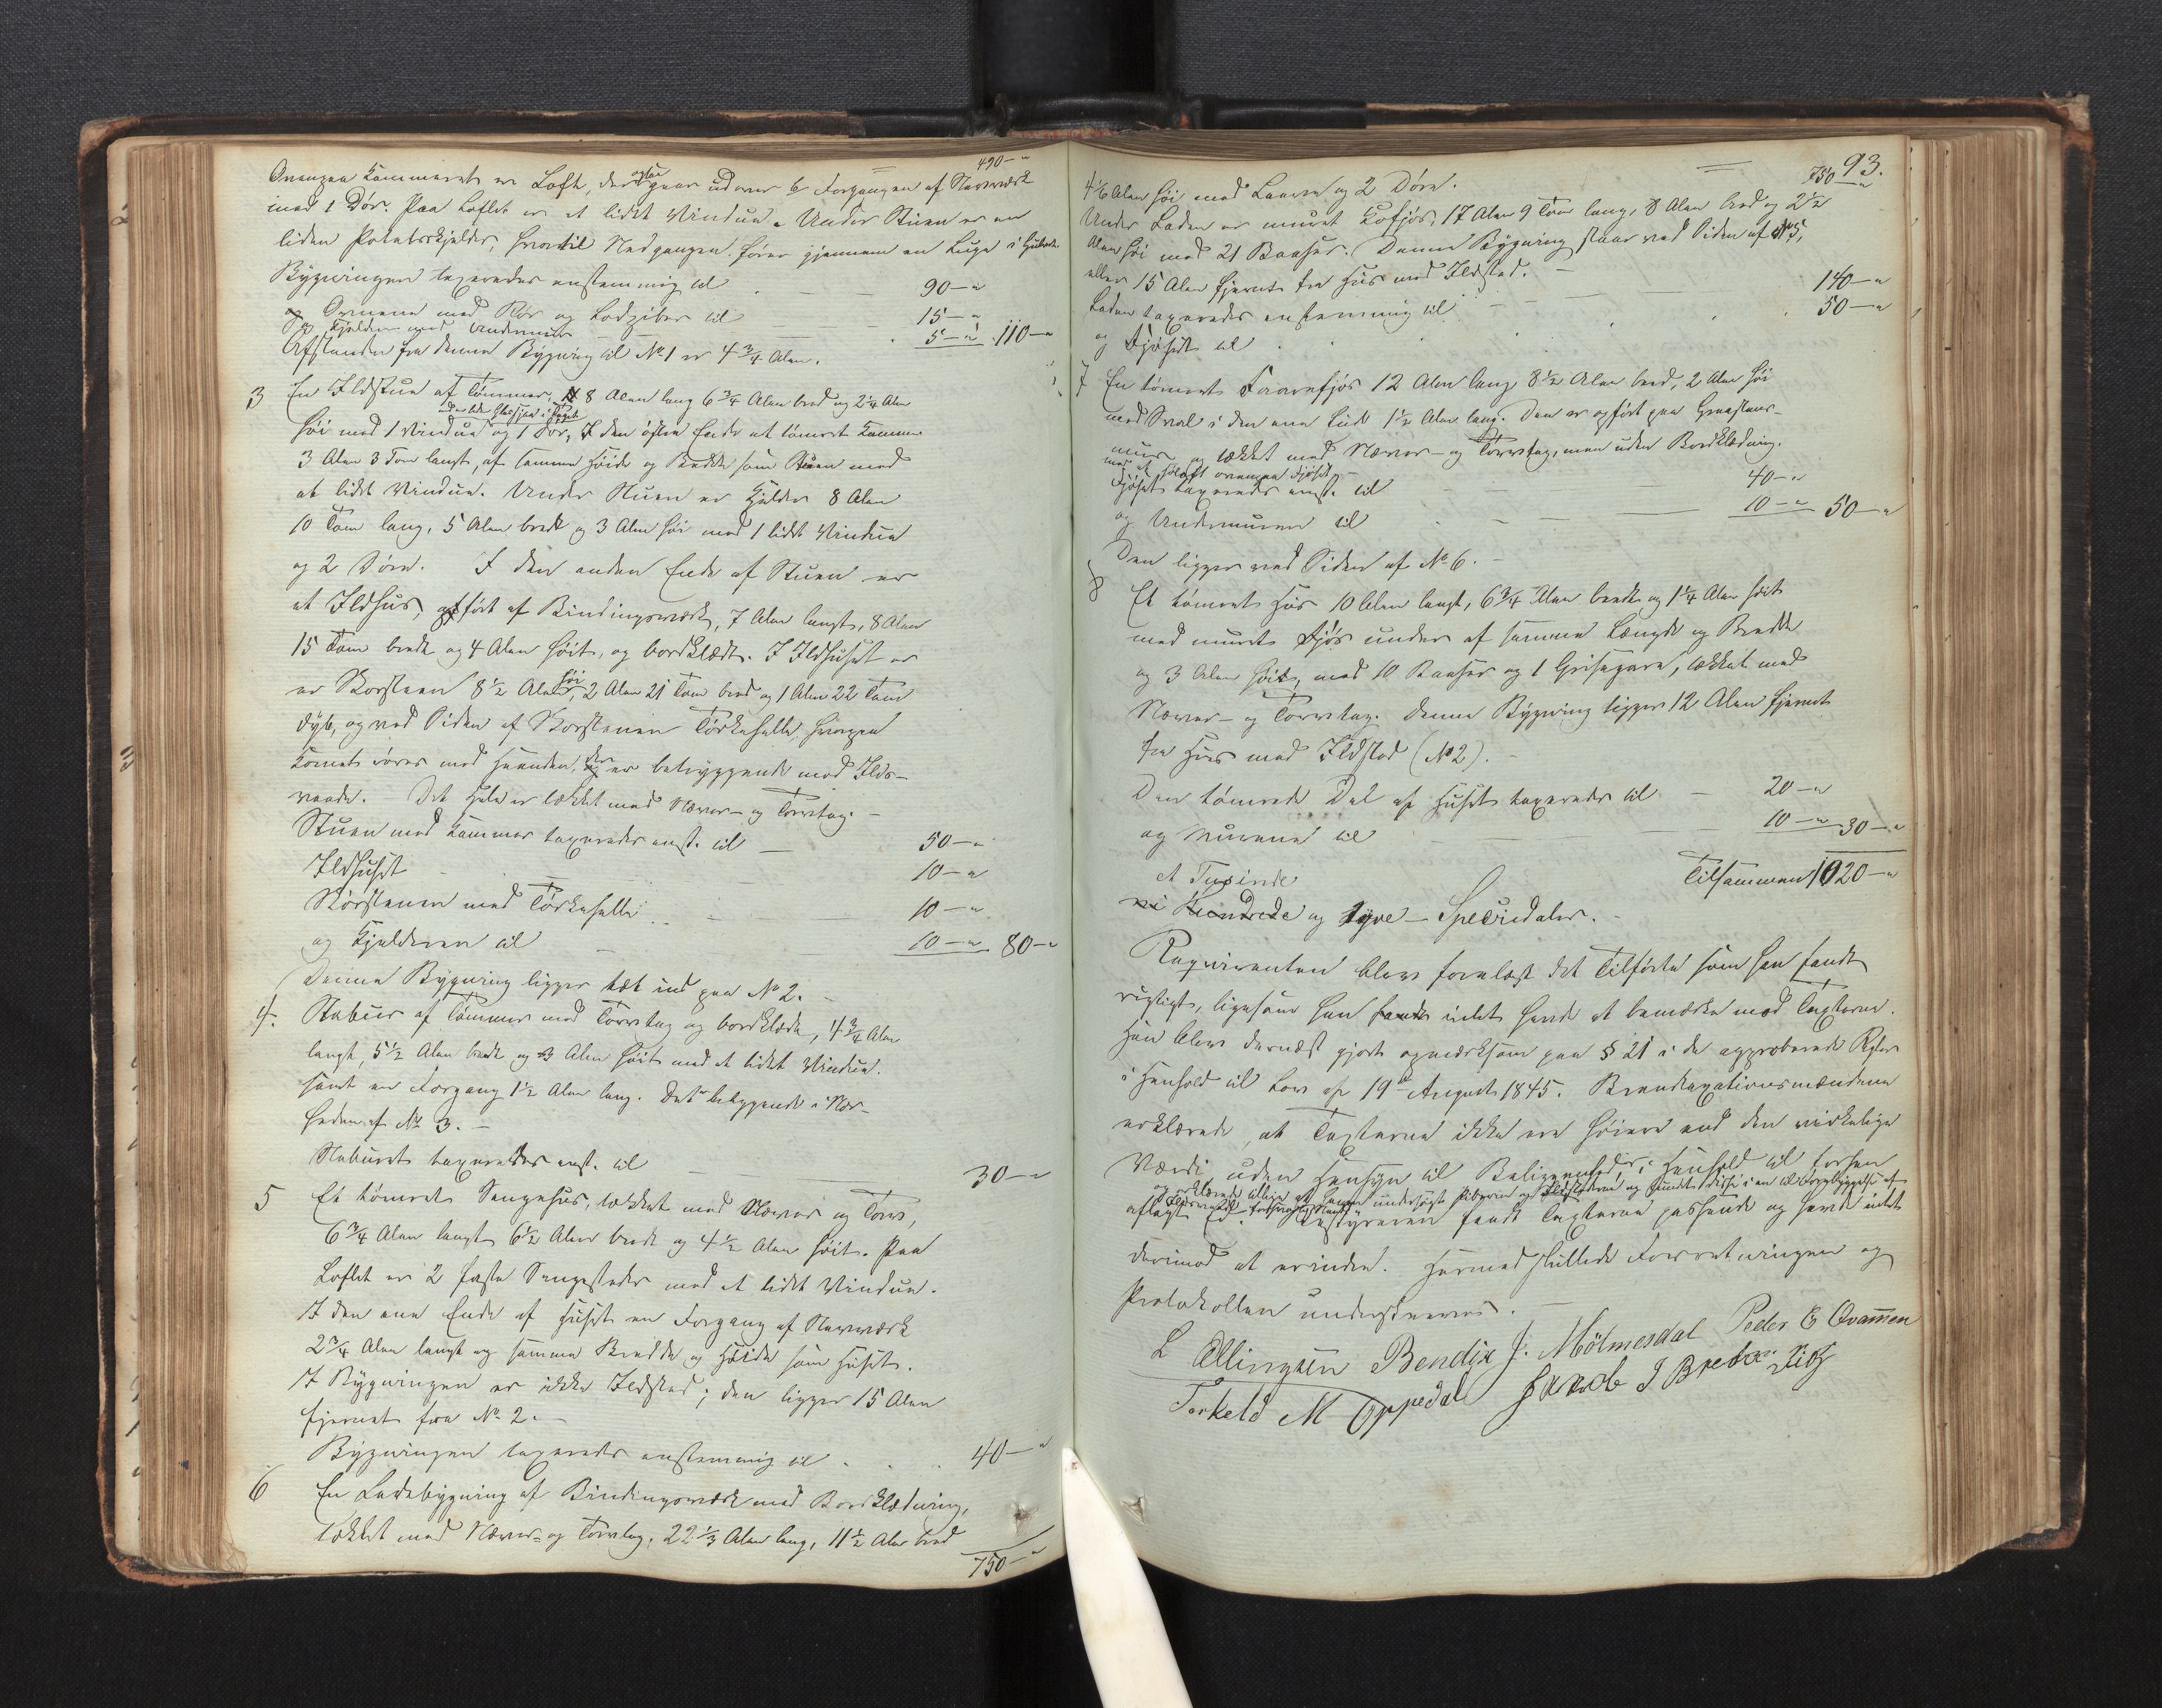 490 – "
Ovenpaa Kammeret er Loft, der ogsaa gaar ud over Forgangen af Stavværk
med 1 Dør. Paa Loftet er et lidet Vindue. Under Stuen er en
liden Potetskjelder, hvortil Nedgangen fører gjennem en Luge i Gulvet.
Bygningen taxeredes enstemmig til 90 – "
Ovnene med Rør og til 15 – "
og Kjelderen med Undermur 5 – " 110 – "
Afstanden fra denne Bygning til No 1 er 4 3/4 Alen.
3 En Ildstue af Tømmer, 8 Alen lang 6 3/4 Alen bred og 2 1/4 Alen
høi med 1 Vindue og 1 Dør, I den østre Ende et tømret Kammer
3 Alen 3 Tom langt, af samme Høide og Bredde som Stuen med
et lidet Vindue. Under Stuen er Kjelder 8 Alen
10 Tom lang, 5 Alen bred og 3 Alen høi med 1 lidet Vindue
og 2 Døre. I den anden Ende af Stuen er
et Ildhus, opført af Bindingsværk, 7 Alen langt, 8 Alen
15 Tom bredt og 4 Alen høit, og bordklædt. I Ildhuset er
er Skorsteen 8 1/2 Alen høi, 2 Alen 21 Tom bred og 1 Alen 22 Tom
dyb, og ved Siden af Skorstenen Tørkehelle, hvorpaa
Kornet røres med Haanden, der er betryggende mod Ilds-
vaade. Det Hele er tækket med Næver- og Torvtag. –
Stuen med Kammer taxeredes enst. til 50 – "
Ildhuset 10 – "
Skorstenen med Tørkehelle 10 – "
og Kjelderen til 10 – " 80 – "
Denne Bygning ligger tæt ind paa No 2.
4. Stabur af Tømmer med Torvtag og bordklædt, 4 3/4 Alen
langt, 5 1/2 Alen bredt og 3 Alen høit med et lidet Vindue.
samt en Forgang 1 1/2 Alen lang. Det i Nær-
heden af No 3. –
Staburet taxeredes enst. til 30 – "
5 Et tømret Sengehus, tækket med Næver og Torv,
6 3/4 Alen langt 6 1/2 Alen bredt og 4 1/2 Alen høit. Paa
Loftet er 2 faste Sengesteder med et lidet Vindue.
I den ene Ende af Huset en Forgang af Stavværk
2 3/4 Alen langt og samme Bredde og Høide som Huset.
I Bygningen er ikke Ildsted; den ligger 15 Alen
fjernet fra No 2. –
Bygningen taxeredes enstemmig til 40 – "
6 En Ladebygning af Bindingsværk med Bordklædning,
tækket med Næver- og Torvtag, 22 1/3 Alen lang, 11 1/2 Alen bred
750 – "
93.
750 – "
4 1/6 Alen høi med Laave og 2 Døre.
Under Laden er muret Kofjøs, 17 Alen 9 Tom lang, 8 Alen bred og 2 1/2
Alen høi med 21 Baaser. Denne Bygning staar ved Siden af No 5,
eller 15 Alen fjernet fra Hus med Ildsted. –
Laden taxeredes enstemmig til 140 – "
og Fjøset til 50 – "
7 En tømret Faarefjøs 12 Alen lang 8 1/2 Alen bred, 2 Alen høi
med Sval i den ene Ende 1 1/2 Alen lang. Den er opført paa Graasteens-
mur og tækket med Næver- og Torvtag, men uden Bordklædning.
med et Høloft ovenpaa Fjøset –
Fjøset taxeredes enst. til 40 – "
og Undermuren til 10 – " 50 – "
Den ligger ved Siden af No 6. –
8 Et tømret Hus 10 Alen langt, 6 3/4 Alen bredt og 1 1/4 Alen høit
med muret Fjøs under af samme Længde og Bredde
og 3 Alen høit, med 10 Baaser og 1 Grisegard, tækket med
Næver- og Torvtag. Denne Bygning ligger 12 Alen fjernet
fra Hus med Ildsted (No 2). –
Den tømrede Del af Huset taxeredes til 20 – "
og Murene til 10 – " 30 – "
Tilsammen 1020 – "
et Tusinde
ni Hundrede og tyve – Speciedaler. –
Requirenten blev forelæst det Tilførte som han fandt
rigtigt, ligesom han intet havde at bemærke mod Taxterne.
Han blev dernæst gjort opmærksom paa § 21 i de approberede Regler
i Henhold til Lov af 19de August 1845. Brandtaxationsmændene
erklærede, at Taxterne ikke ere høiere end den virkelige
Værdi uden Hensyn til Beliggenheden, i Henhold til forhen
og erklærede tillige at have undersøgt Piberne og Ildstederne og fundet disse i en til Forebyggelse af
aflagt Ed. Bestyreren fandt Taxterne passende og havde intet
derimod at erindre. Hermed sluttede Forretningen og
Protokollen underskreves. –
L Ellingsen Bendix J. Mölmesdal Peder E Qvammen
Torkeld M Oppedal Jakob J Brekke